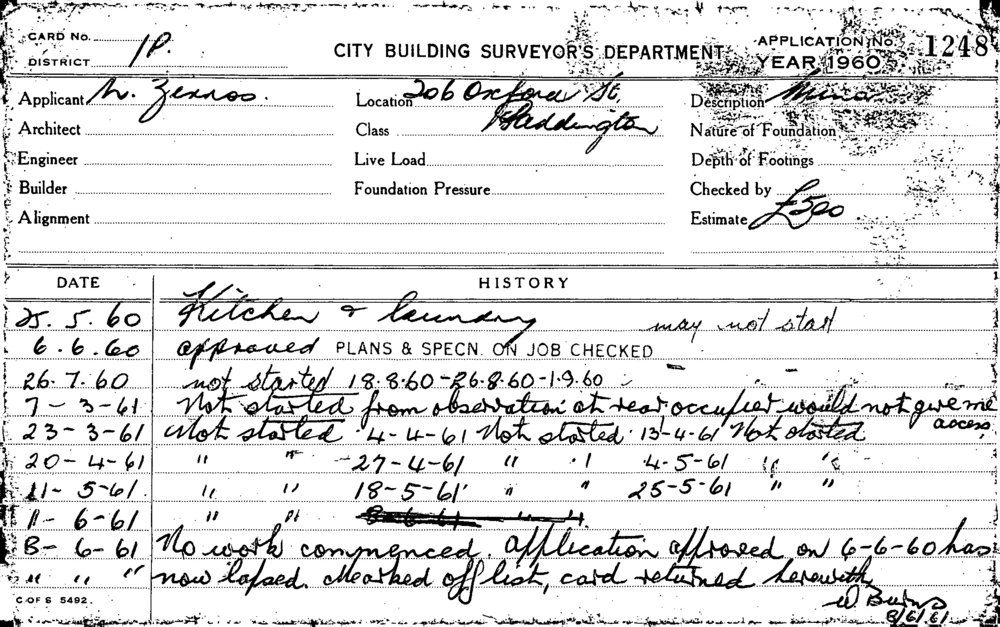 CARD No. 1P.
DISTRICT
CITY BUILDING SURVEYOR'S DEPARTMENT
APPLICATION No. 1248
YEAR 1960
Applicant N. Zervos. Location 206 Oxford St. Description Minor
Architect Class Paddington Nature of Foundation
Engineer Live Load Depth of Footings
Builder Foundation Pressure Checked by
Alignment Estimate £500
DATE HISTORY
25. 5. 60 Kitchen & laundry may not start
6. 6. 60 approved PLANS & SPECN. ON JOB CHECKED
26. 7. 60 not started 18.8.60-26.8.60-1.9.60
7-3-61 Not started from observation at rear occupier would not give me access,
23-3-61 Not started 4-4-61 Not started 13-4-61 Not started
20-4-61 " " 27-4-61 " " 4-5-61 " "
11-5-61 " " 18-5-61 " " 25-5-61 " "
11-6-61 " " 8-6-61 " "
8-6-61 No work commenced. Application approved on 6-6-60 has
" " " now lapsed. Marked off list, card returned herewith
W Burns
8/6/61
C OF S 5492.